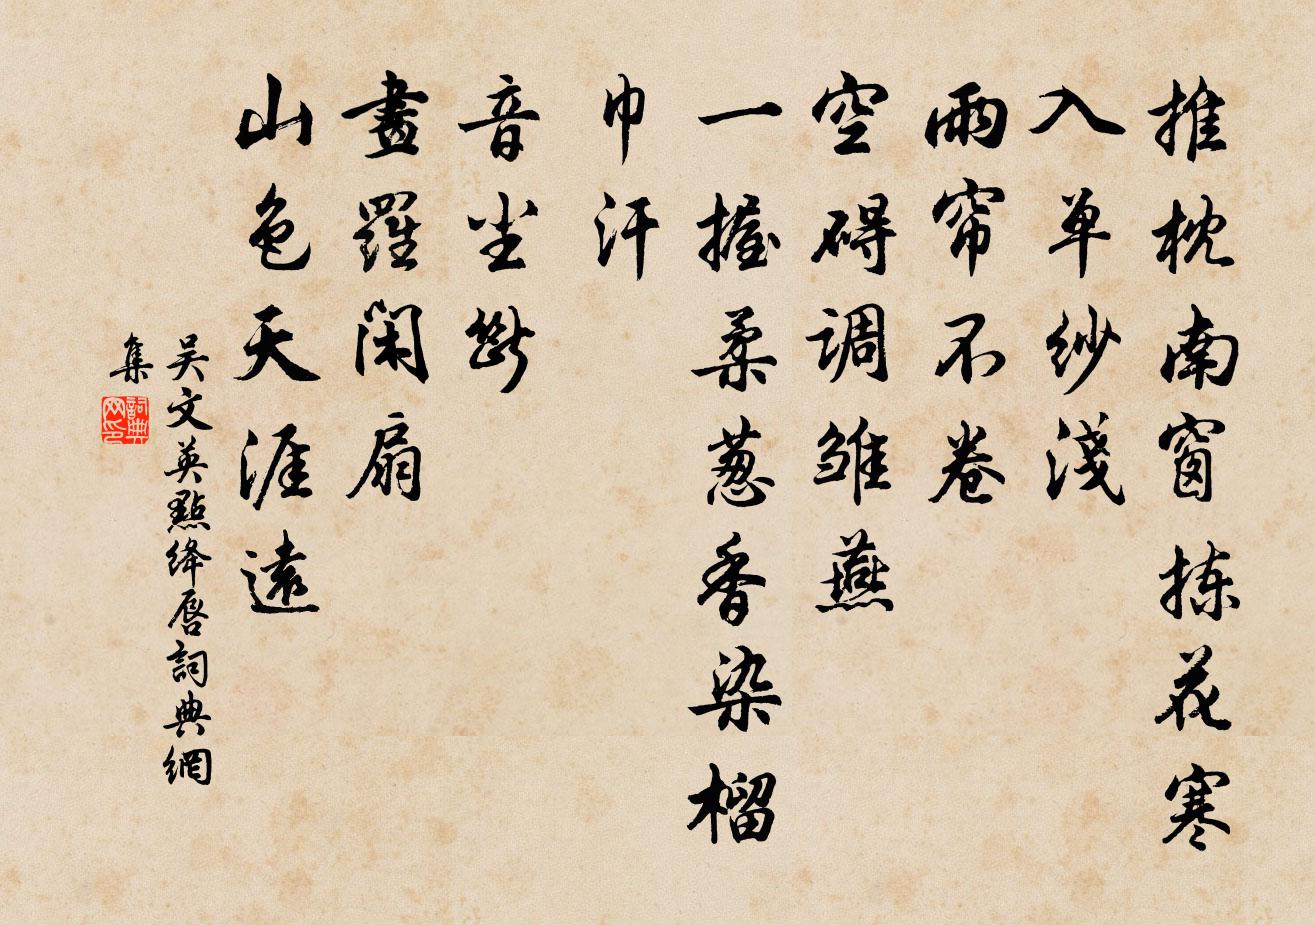 推枕南窗拣花寒
入单纱淺
雨帘不卷
空碍调雏燕
一握柔葱香染榴
巾汗
音尘斷
畫羅閑扇
山色天涯遠
吴文英點绛唇詞典網
集
詞典
网印